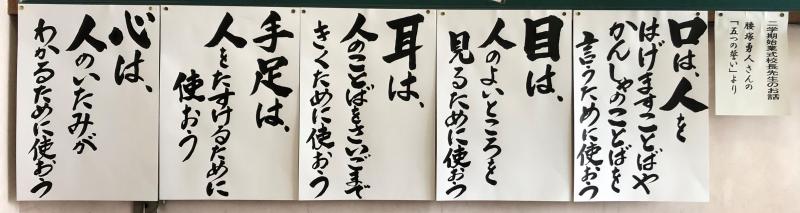 二学期始業式校長先生のお話
腰塚勇人さんの
「五つの誓い」より
口は、人を
はげますことばや
かんしゃのことばを
言うために使おう
目は、
人のよいところを
見るために使おう
耳は、
人のことばをさいごまで
きくために使おう
手足は、
人をたすけるために
使おう
心は、
人のいたみが
わかるために使おう